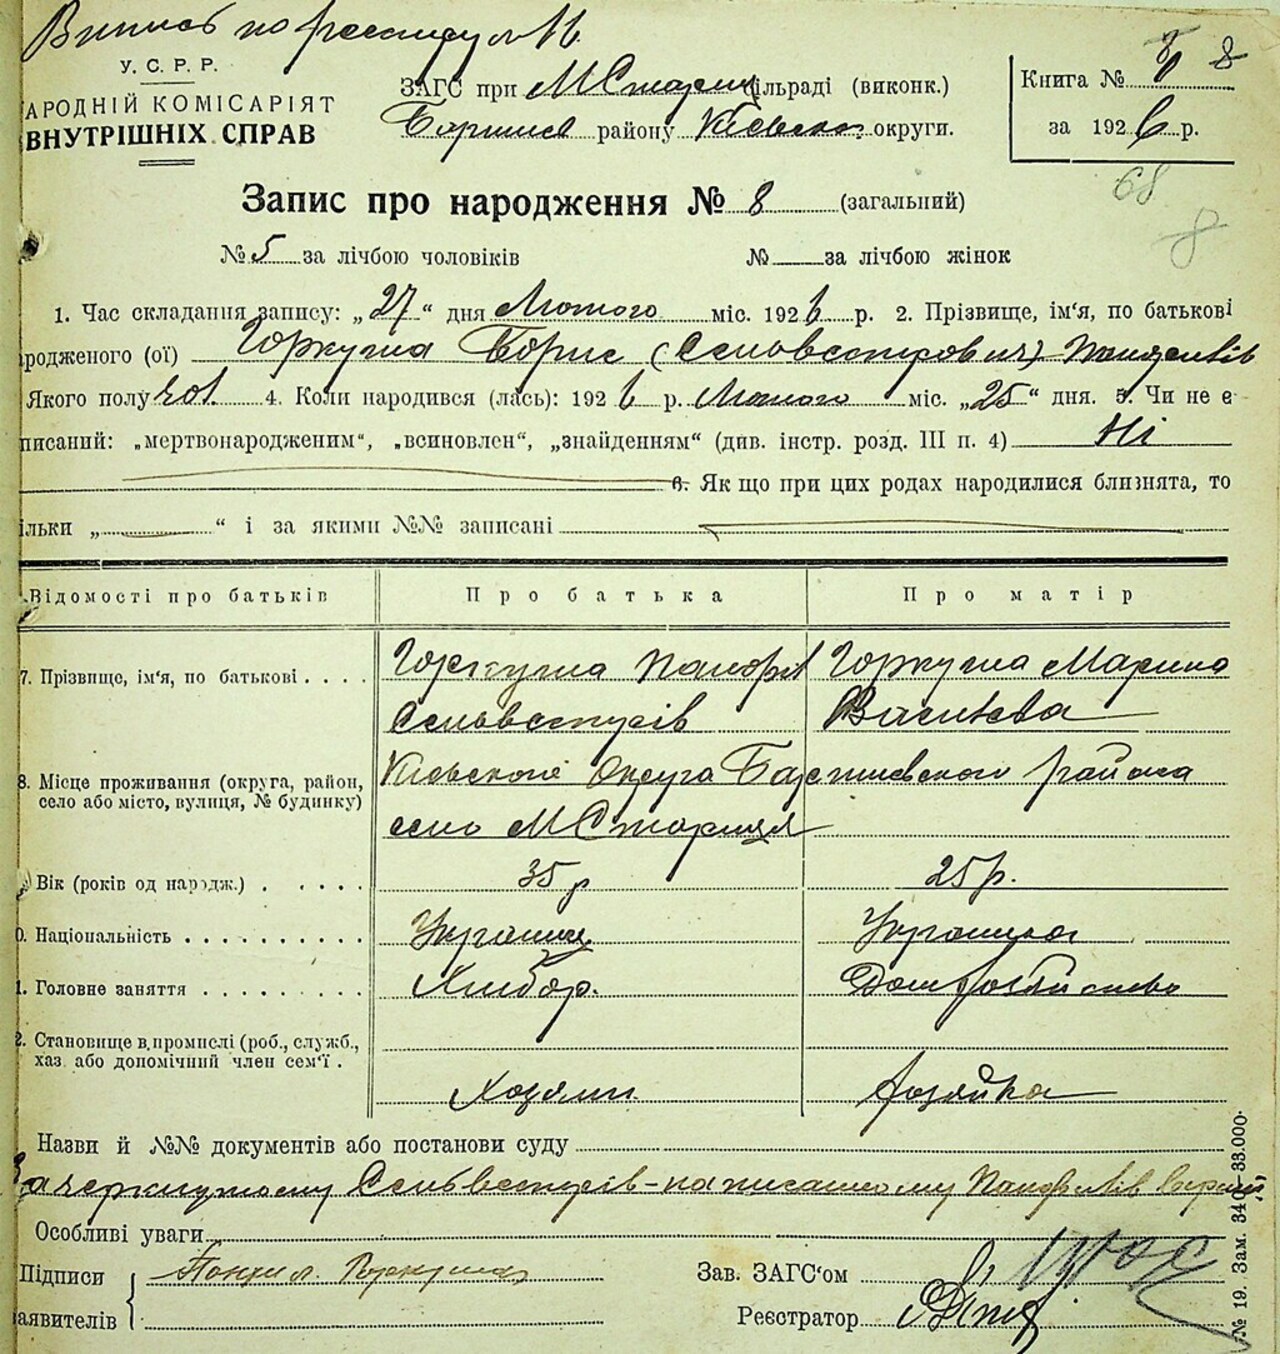 Випись по реєстру № 16.
У. С. Р. Р.
АРОДНІЙ КОМІСАРІЯТ
ВНУТРІШНІХ СПРАВ
ЗАГС при МСтариц ільраді (виконк.)
Баришев району Київської округи.
Книга № 8
за 1926 р.
68
8
Запис про народження № 8 (загальний)
№ 5 за лічбою чоловіків № за лічбою жінок
1. Час складання запису: „27“ дня Лютого міс. 1926 р. 2. Прізвище, ім'я, по батькові
родженого (ої) Горкуша Борис (Сельвестрович) Панфілів
Якого полу чол. 4. Коли народився (лась): 1926 р. Лютого міс. „25“ дня. 5. Чи не є
писаний: „мертвонародженим“, „всиновлен“, „знайденням“ (див. інстр. розд. III п. 4) Ні
6. Якщо при цих родах народилися близнята, то
ільки „ “ і за якими №№ записані
Відомості про батьків Про батька Про матір
7. Прізвище, ім'я, по батькові . . . . Горкуша Панфіл Горкуша Марина
Сельвестрів Васильєва
8. Місце проживання (округа, район, село або місто, вулиця, № будинку) Київської Округа Баришевского района
село МСтариця
Вік (років од народж.) . . . . . 35 р 25 р.
0. Національність . . . . . . . . . . Українец Українка
1. Головне заняття . . . . . . . . . Хлібор. Дом хозяйство
2. Становище в промислі (роб., служб.,
хаз. або допомічний член сем'ї .
Хозяин Хозяйка
Назви й №№ документів або постанови суду
Зачеркнутому Сельвестрів - написаному Панфілів вірит
Особливі уваги
Підписи Панфил Горкуша
аявителів
Зав. ЗАГС'ом
Реєстратор
№ 19. Зам. 340—33.000.